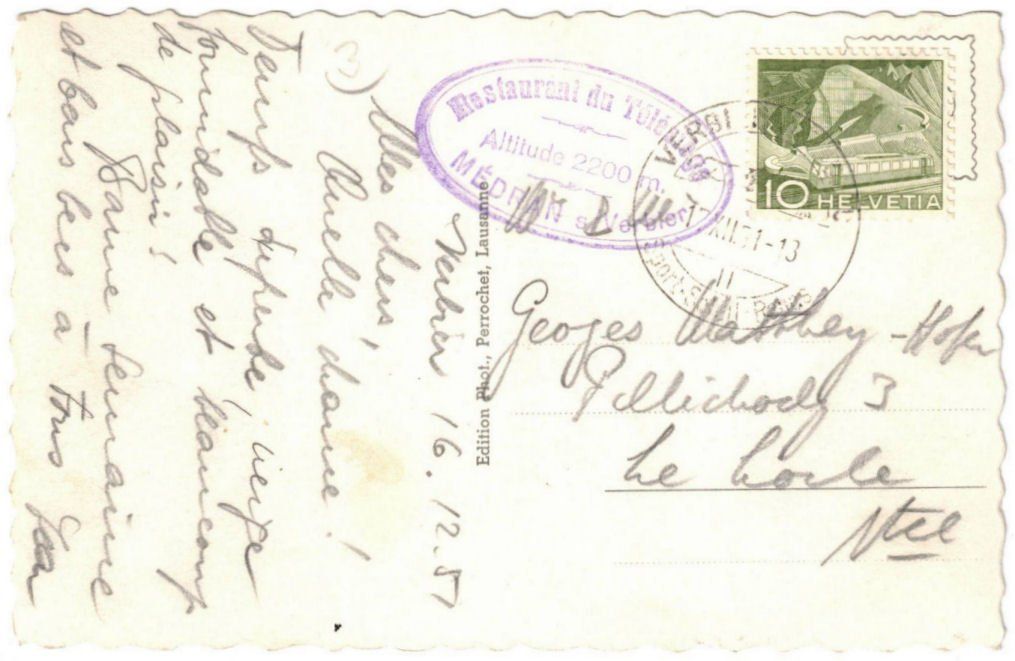 Verbier 16.12.51
Mes chers,
Quelle chance!
Temps superbe, neige
formidable et beaucoup
de plaisir!
Bonne semaine
et bons becs à tous
Restaurant du Télé
Altitude 2200 m.
MÉDRAN s/Verbier
Edition Phot., Perrochet, Lausanne
VERBI
XII.51-13
10 HELVETIA
Georges Matthey-Hofer
Pillichody 3
Le Locle
Ntel